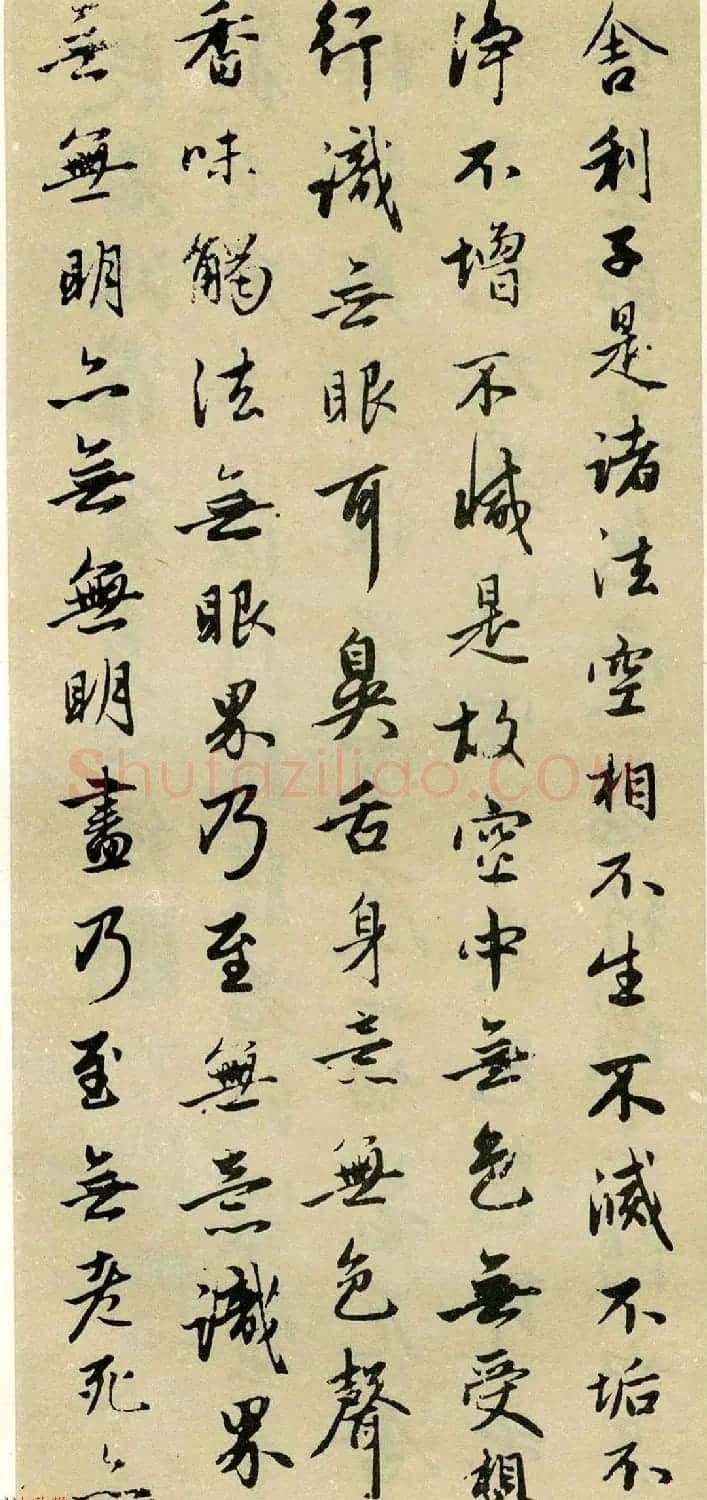 舍利子是諸法空相不生不滅不垢不
淨不增不減是故空中無色無受想
行識無眼耳鼻舌身意無色聲
香味觸法無眼界乃至無意識界
無無明亦無無明盡乃至無老死亦
Shufaziliao.com